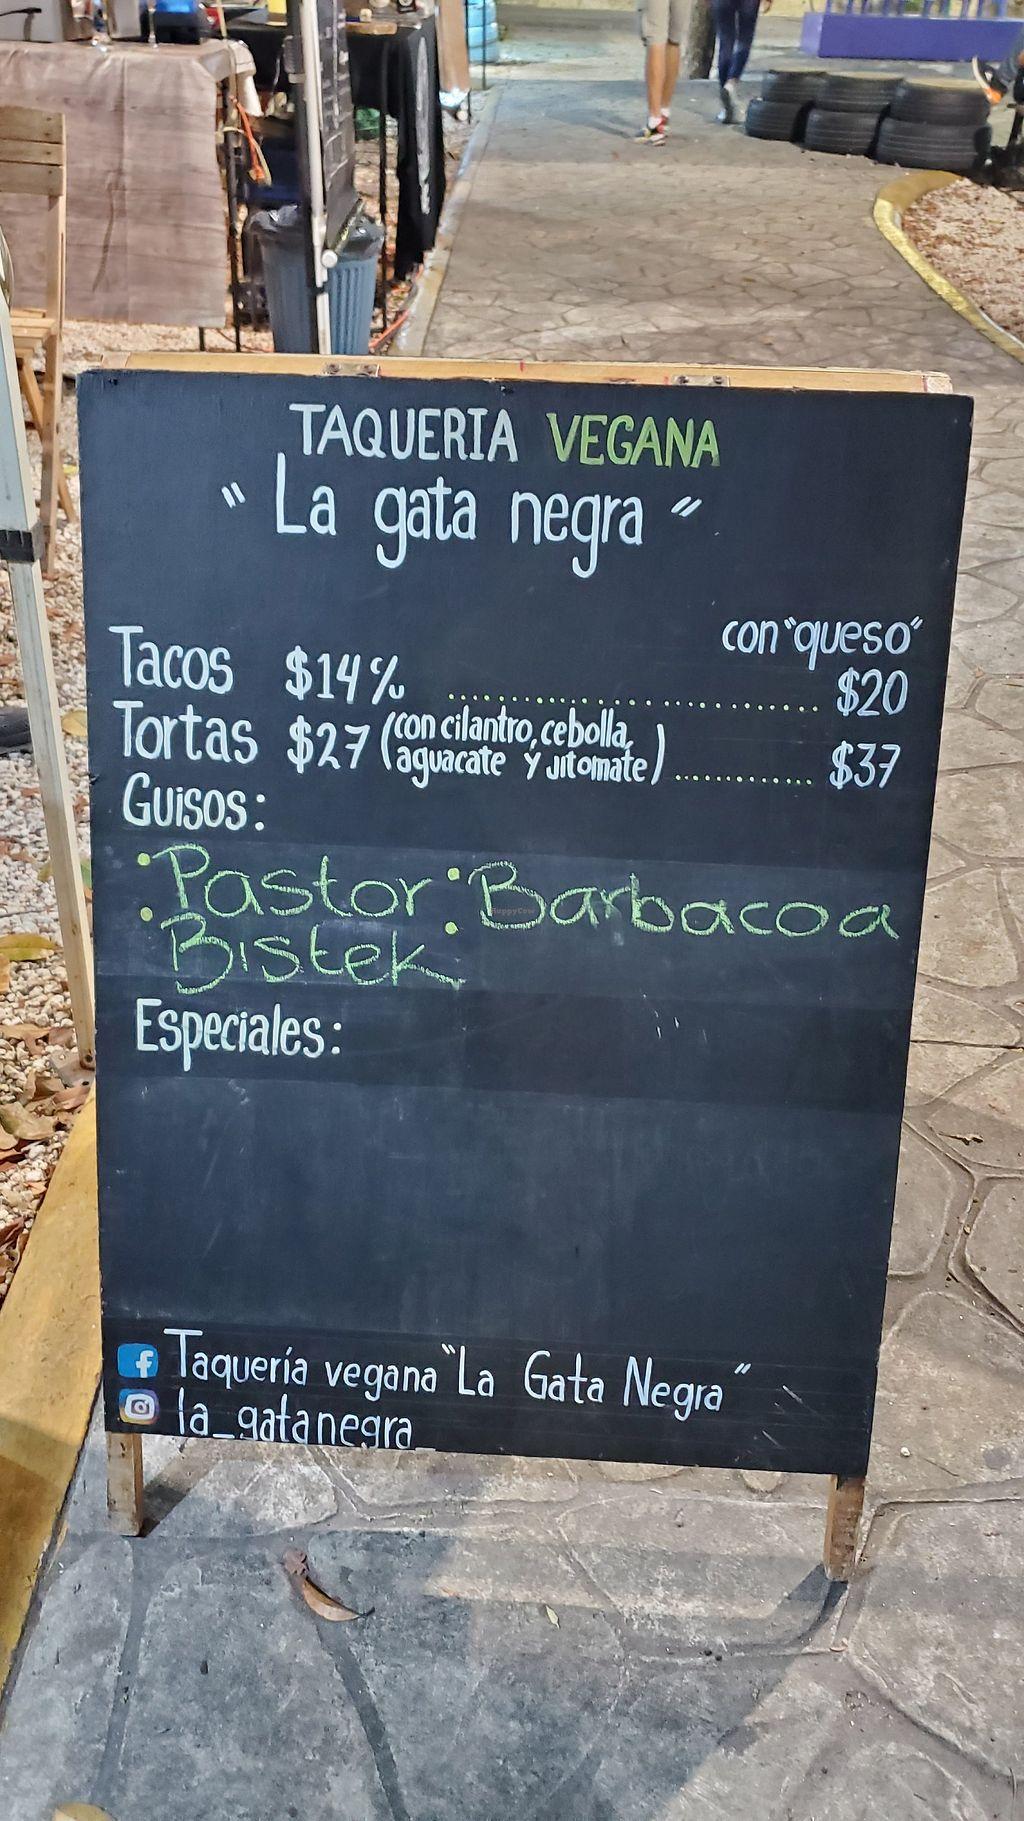 TAQUERIA VEGANA
"La gata negra"
con "queso"
Tacos $14 c/u .............................. $20
Tortas $27 (con cilantro, cebolla, aguacate y jitomate) ............. $37
Guisos:
• Pastor • Barbacoa
• Bistek •
Especiales:
Taquería vegana "La Gata Negra"
la_gatanegra_
HappyCow